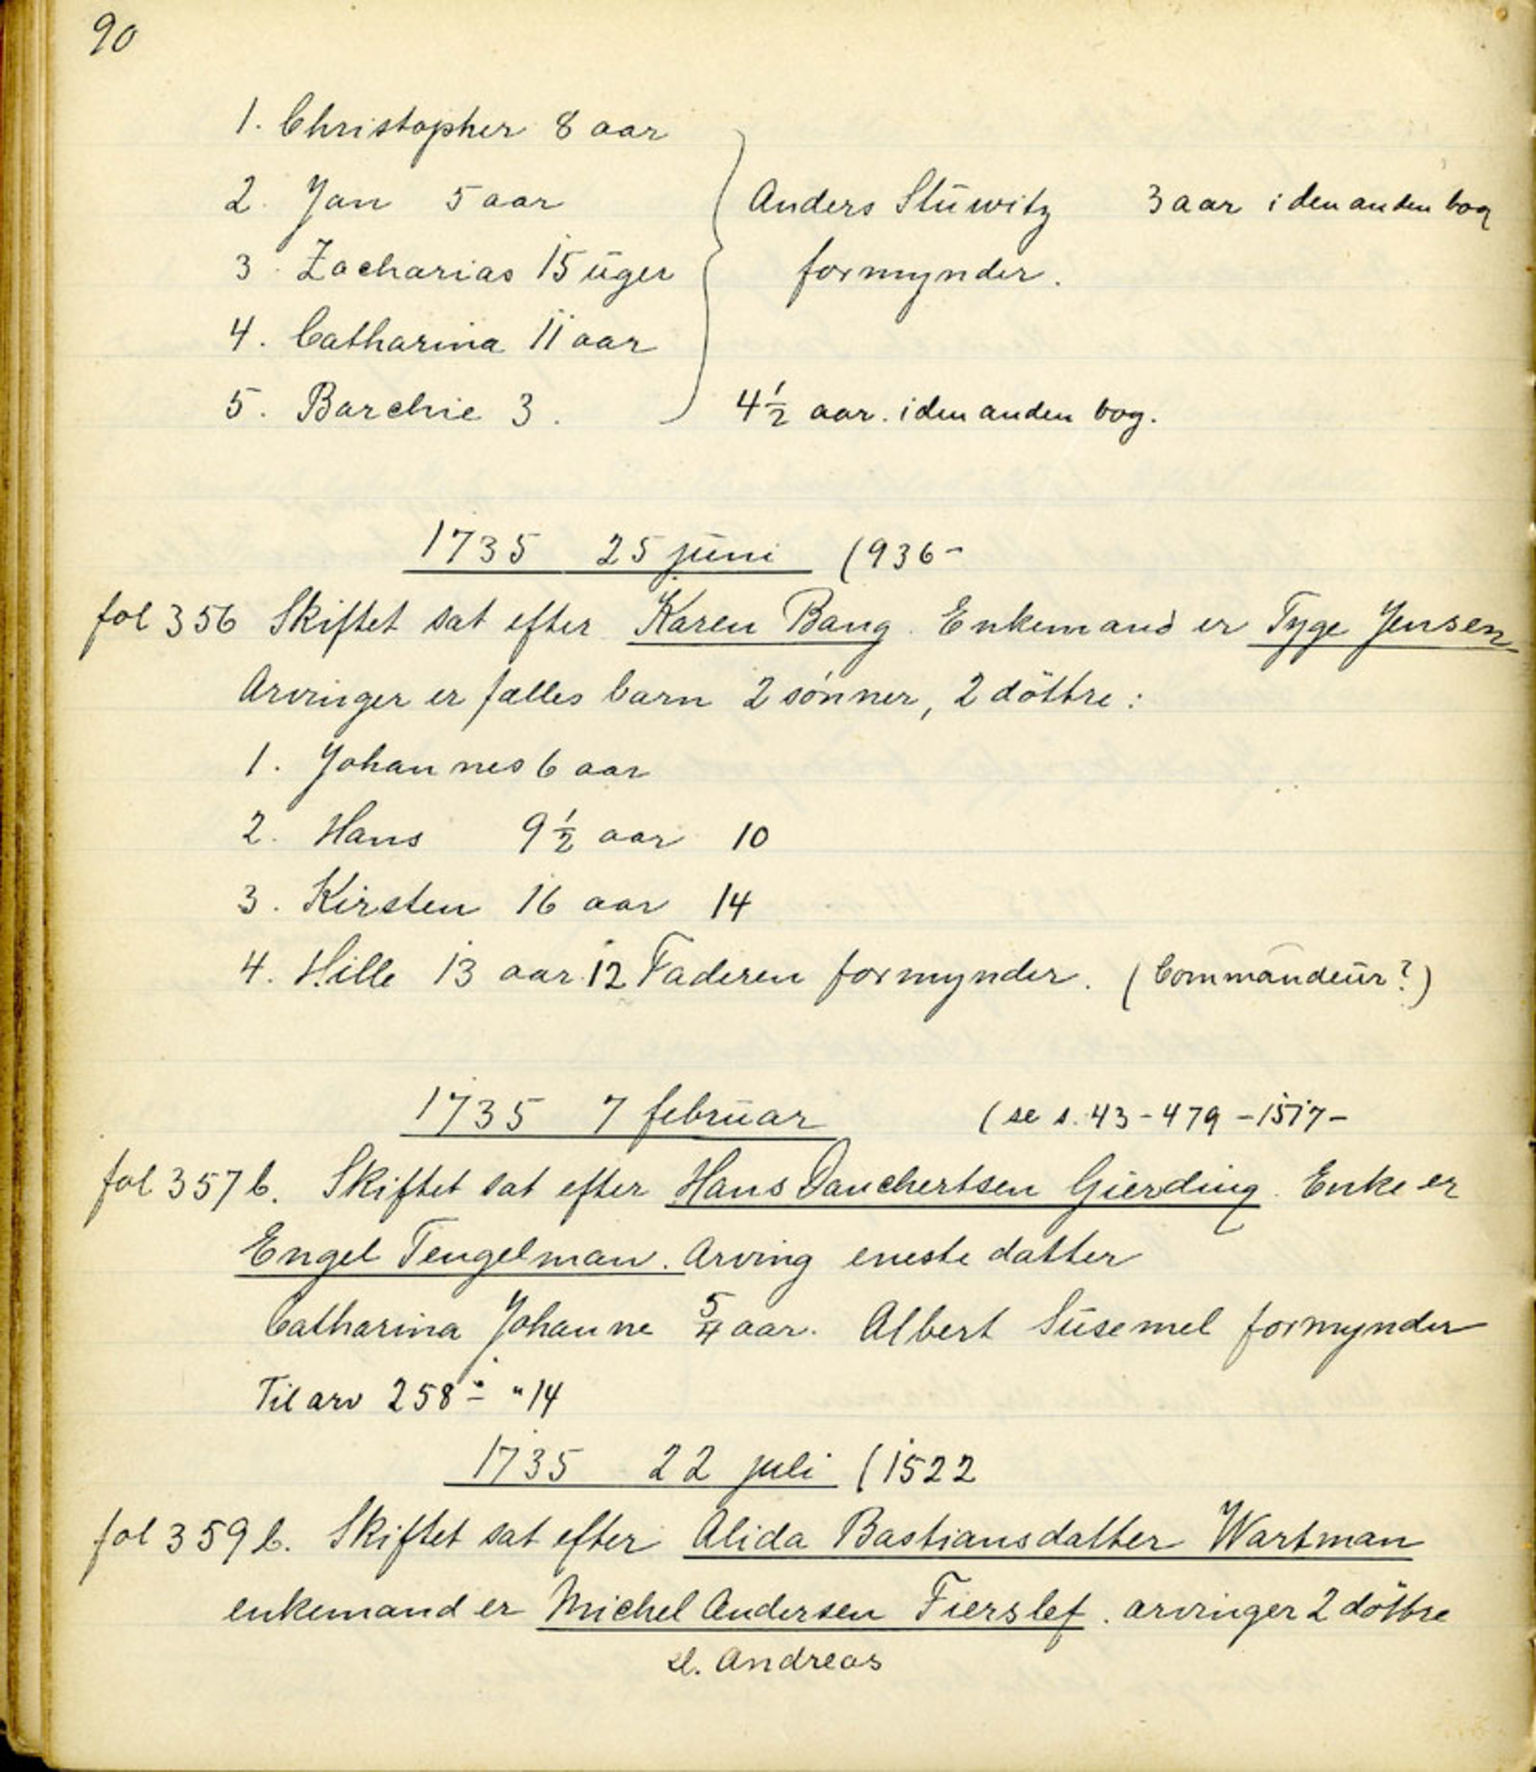 90
1. Christopher 8 aar
2. Jan 5 aar Anders Stuwitz 3 aar i den anden bog
3. Zacharias 15 uger formynder.
4. Catharina 11 aar
5. Barchie 3. 4½ aar. i den anden bog.
1735 25 juni (936-
fol 356 Skiftet sat efter Karen Bang. Enkemand er Tyge Jensen
Arvinger er fælles barn 2 sönner, 2 döttre:
1. Johannes 6 aar
2. Hans 9½ aar 10
3. Kirsten 16 aar 14
4. Hille 13 aar. 12 Faderen formynder. (Commandeur?)
1735 7 februar (se s. 43-479-1517-
fol 357 b. Skiftet sat efter Hans Danchertsen Gierding. Enke er
Engel Tengelman. Arving eneste datter
Catharina Johanne 5/4 aar. Albert Susemel formynder
Til arv 258 - " 14
1735 22 juli (1522
fol 359 b. Skiftet sat efter Alida Bastiansdatter Wartman
enkemand er Michel Andersen Fierslef. arvinger 2 döttre
el. Andreas